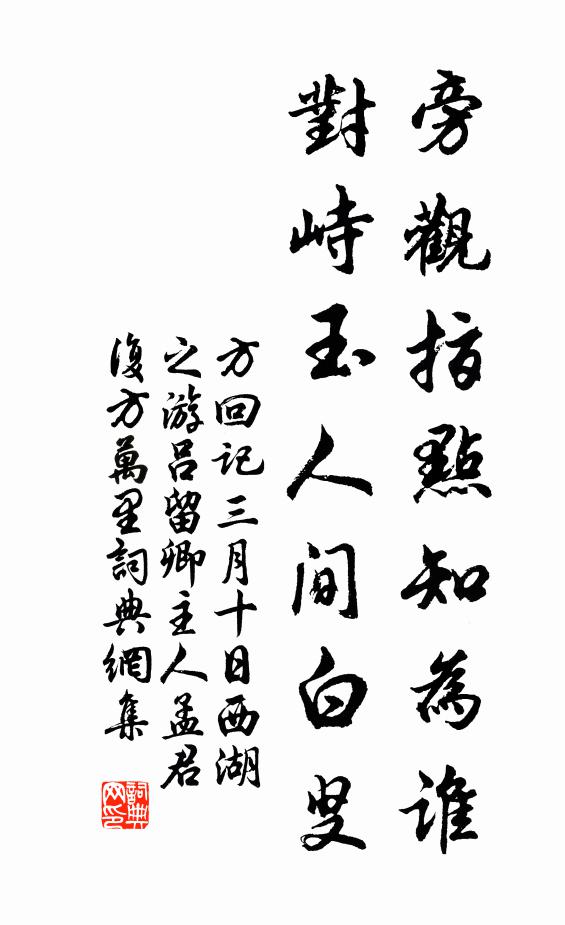 旁觀指點知為誰
對峙玉人間白叟
方回記三月十日西湖
之游呂留卿主人孟君
復方萬里詞典網集
詞典网印